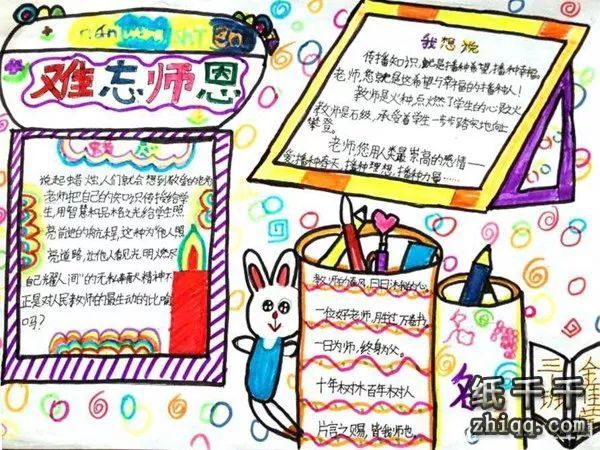 难忘师恩
说起蜡烛人们就会想到敬爱的老师
老师把自己的知识传授给学
生,用智慧和品格之光给学生照
亮前进的前程,这种为他人照
亮道路,让他人看见光明燃尽
自己耀人间"的无私奉献精神不
正是对人民教师的最生动的比喻
吗?
我想说
传播知识,就是播种希望,播种幸福。
老师,您就是这希望与幸福的播种人!
教师是火种,点燃了学生的心灵之火
教师是石级,承受着学生一步步踏实地向上
攀登。
老师,您用人类最崇高的感情——
爱,播种春天,播种理想,播种力量……
教师的春风,日日沐我心。
一位好老师,胜过万卷书。
一日为师,终身为父。
十年树木百年树人
片言之赐,皆我师也。
名
名
纸千千
zhiqq.com